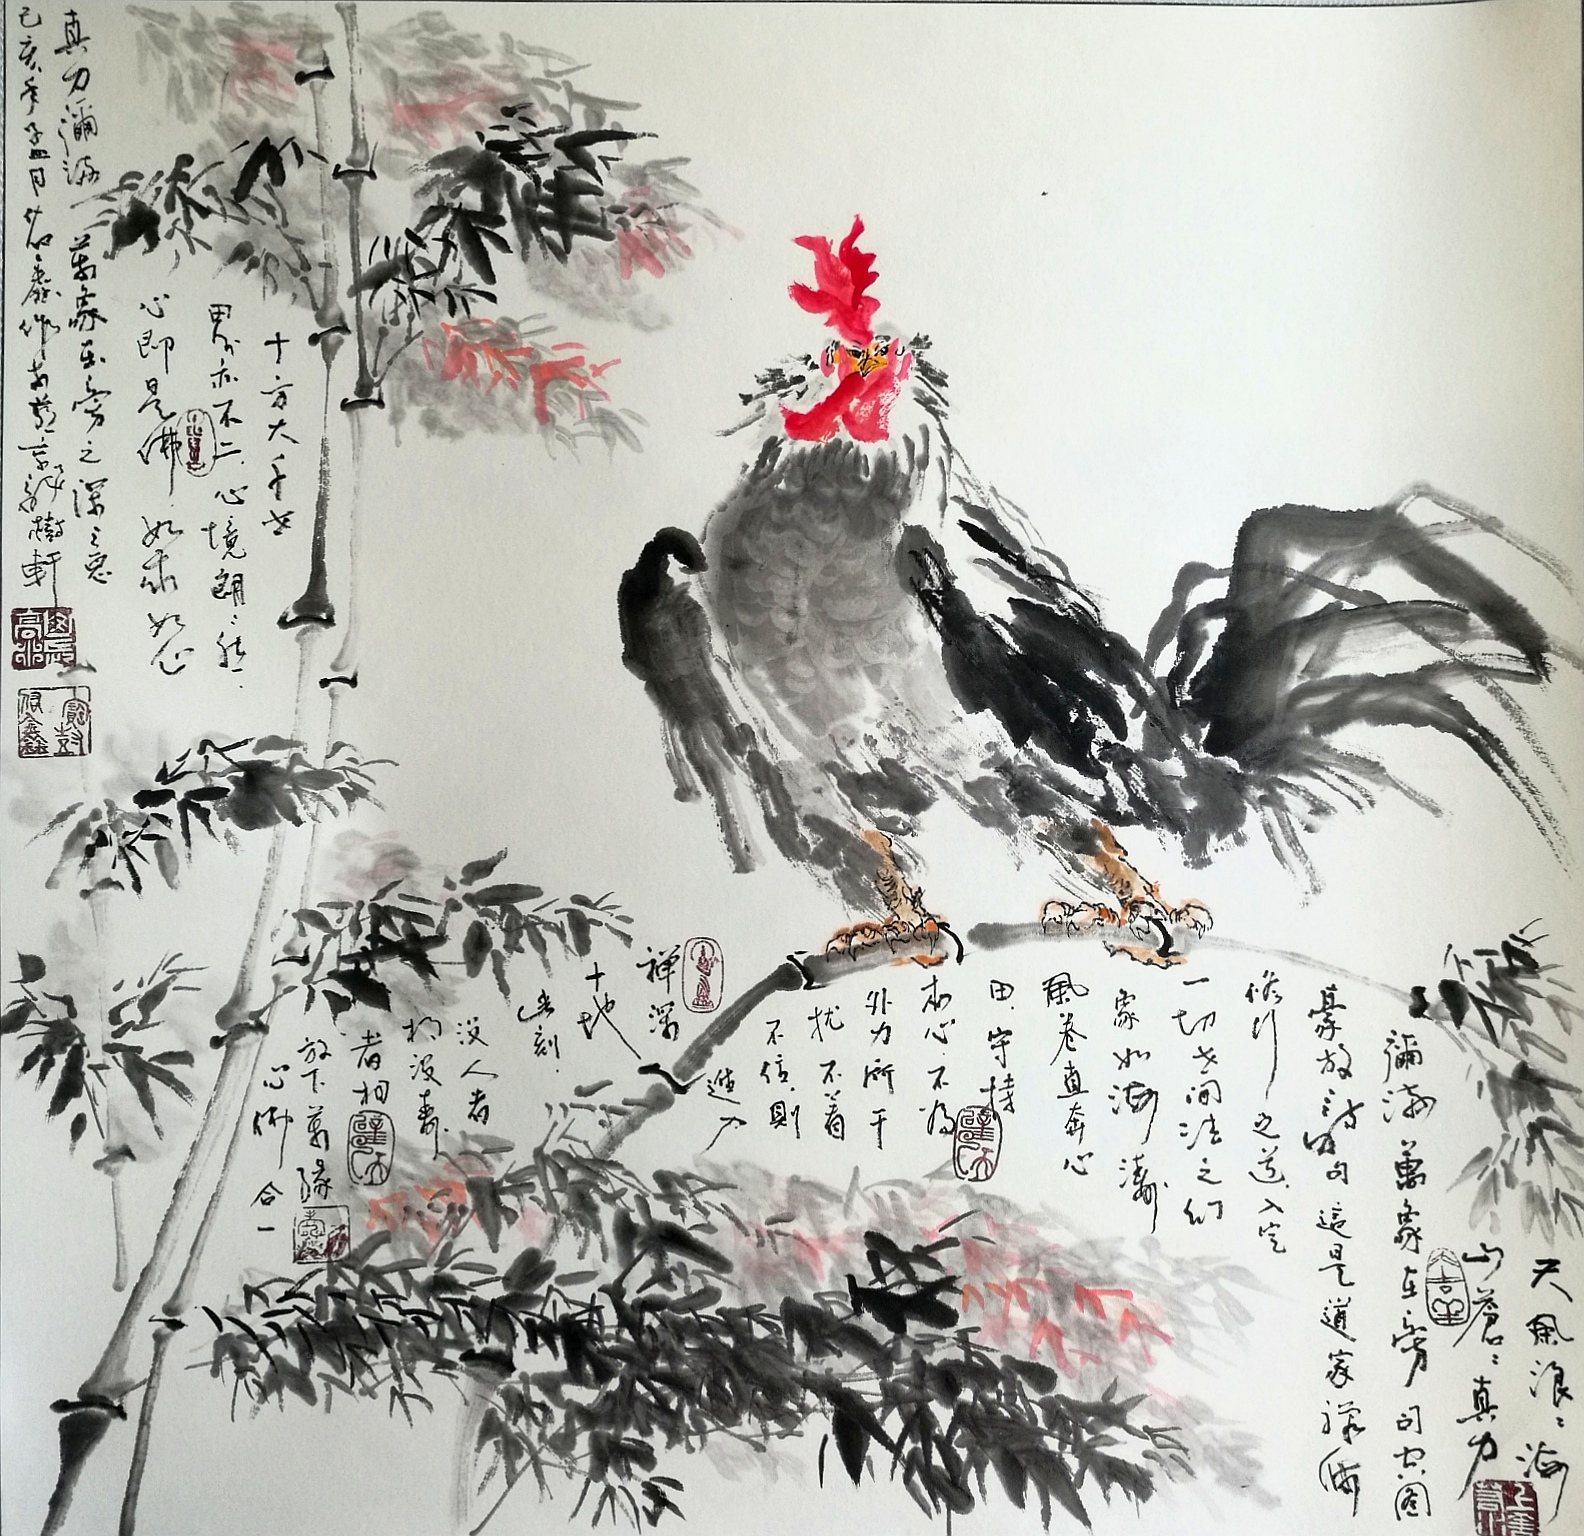 天风浪浪海
山蒼蒼真力
彌滿萬象在旁司空图
豪放诗句這是道家禅佛
修行之道入定
一切世间法之幻
象如海濤
風卷直奔心
田守持
本心不為
外力所干
扰不着
不信則
進入
禅深
十地
此刻
没人者
相没壽
者相
放下萬緣
心佛合一
十方大千世
界亦不二心境朗朗然一
心即是佛如来如心
真力彌满萬象在旁之深深意
己亥年孟月
作於北京
樹軒